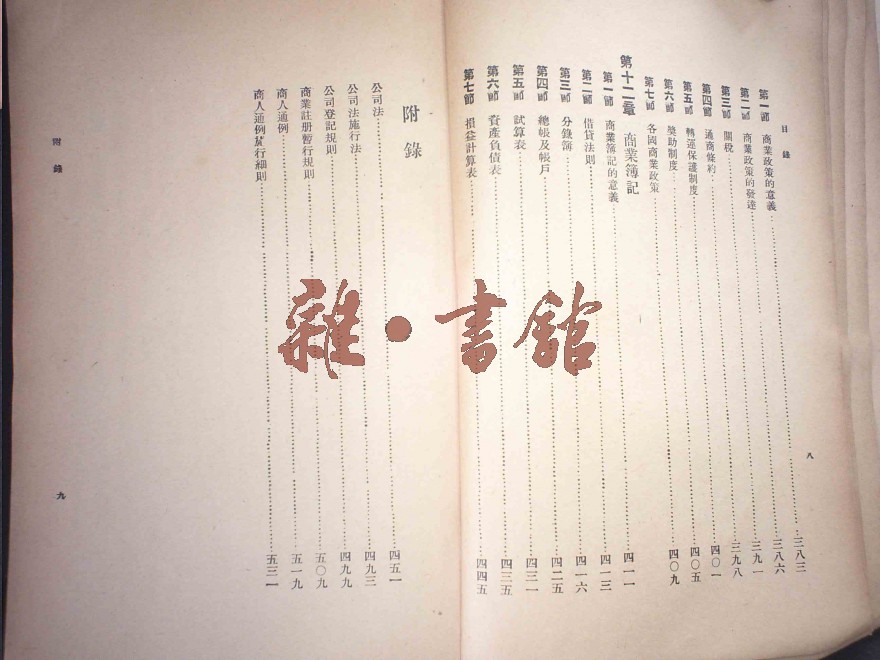 目錄
第一節 商業政策的意義……三八三
第二節 商業政策的發達……三八六
第三節 關稅……三九一
第四節 通商條約……三九八
第五節 轉運保護制度……四〇一
第六節 獎助制度……四〇五
第七節 各國商業政策……四〇九
第十二章 商業簿記
第一節 商業簿記的意義……四一一
第二節 借貸法則……四一三
第三節 分錄簿……四一六
第四節 總帳及帳戶……四二五
第五節 試算表……四三一
第六節 資產負債表……四三五
第七節 損益計算表……四四五
八
附錄
公司法……四五一
公司法施行法……四九三
公司登記規則……四九九
商業註册暫行規則……五〇九
商人通例……五一九
商人通例施行細則……五三一
附錄
九
雜·書館